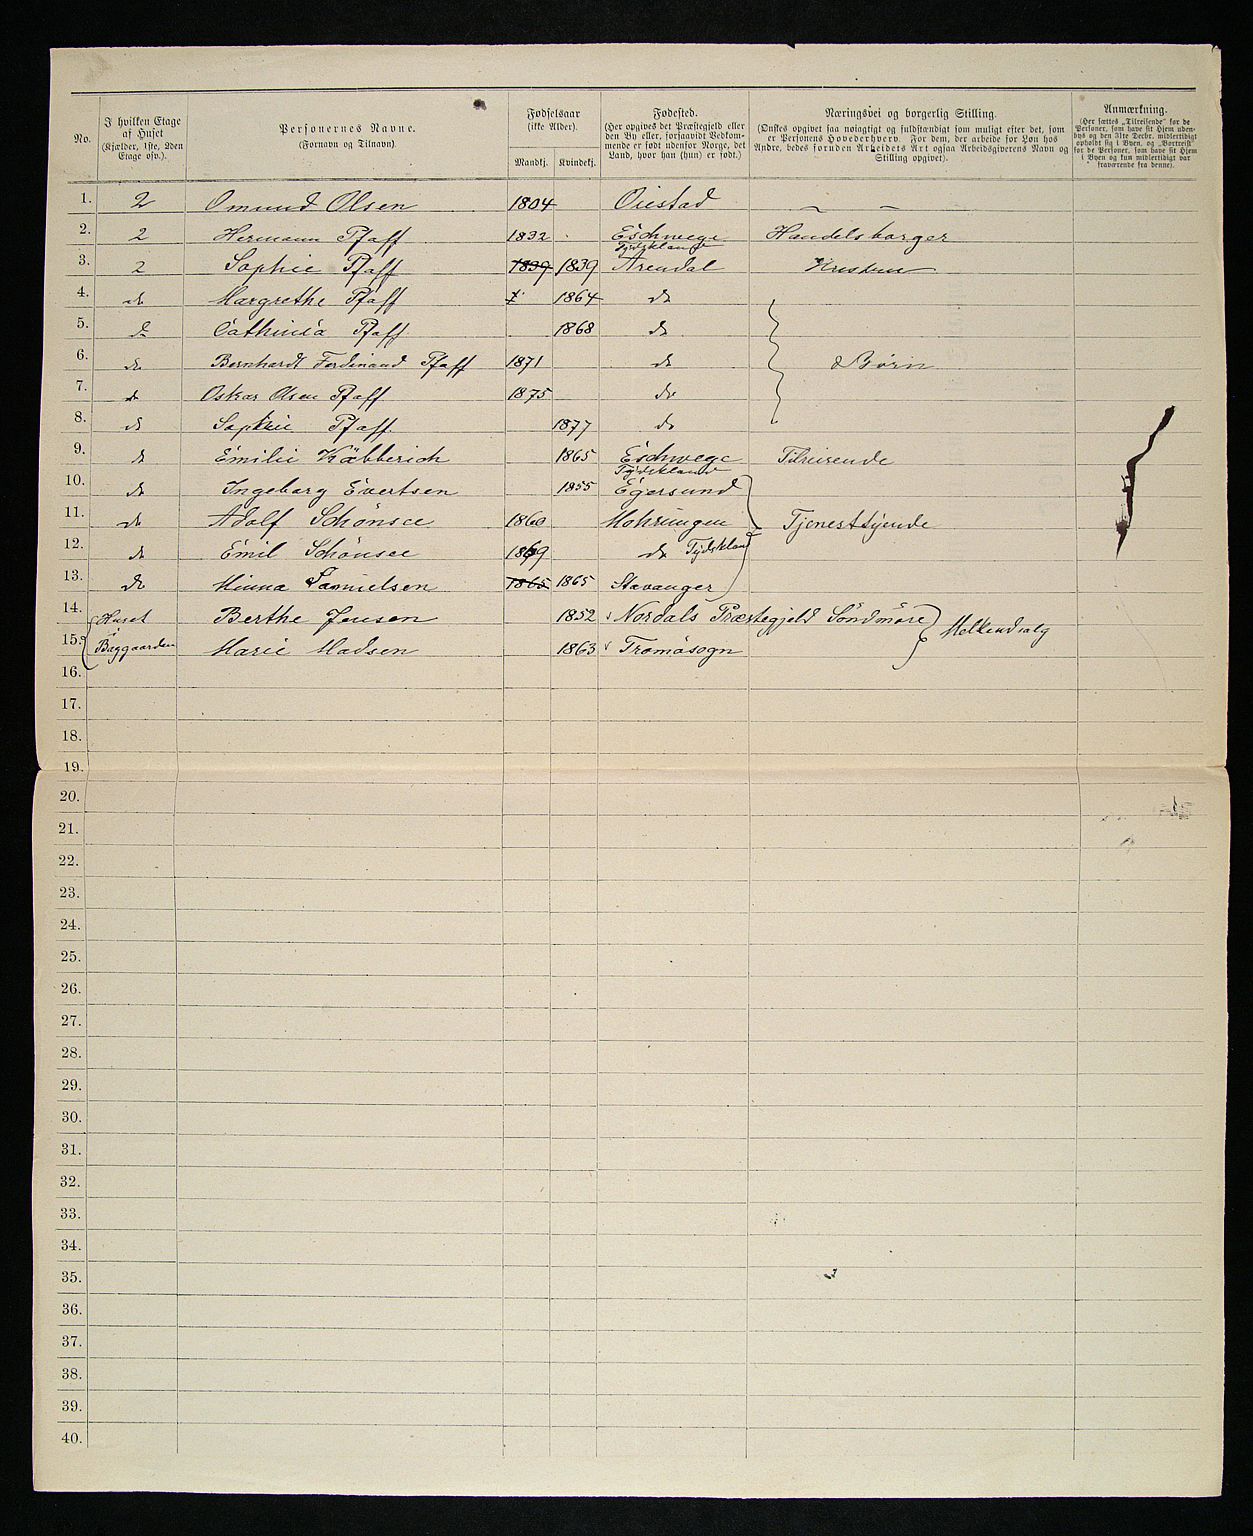 No.
I hvilken Etage af Huset (Kjælder, 1ste, 2den Etage osv.).
Personernes Navne. (Fornavn og Tilnavn)
Fødselsaar (ikke Alder). Mandkj. Kvindekj.
Fødested. (Her opgives det Præstegjeld eller den By eller, forsaavidt Vedkommende er født udenfor Norge, det Land, hvor han (hun) er født.)
Næringsvei og borgerlig Stilling. (Ønskes opgivet saa nøiagtigt og fuldstændigt som muligt efter det, som er Personens Hovederhverv. For dem, der arbeide for Løn hos Andre, bedes foruden Arbeidets Art ogsaa Arbeidsgiverens Navn og Stilling opgivet).
Anmærkning. (Her sættes „Tilreisende“ for de Personer, som have sit Hjem udenbys og den 31te Decbr. midlertidigt opholdt sig i Byen, og „Bortreist“ for de Personer, som have sit Hjem i Byen og kun midlertidigt var fraværende fra denne).
1. 2 Omund Olsen 1804 Oiestad
2. 2 Hermann Pfaff 1832 Eschwege Tydskland Handelsborger
3. 2 Sophie Pfaff 1839 1839 Arendal Hustru
4. do Margrethe Pfaff 1864 do
5. do Cathinca Pfaff 1868 do
6. do Bernhardt Ferdinand Pfaff 1871 do Børn
7. do Oskar Olsen Pfaff 1875 do
8. do Sophie Pfaff 1877 do
9. do Emilie Käbberich 1865 Eschwege Tydskland Tilreisende
10. do Ingeborg Evertsen 1855 Egersund
11. do Adolf Schönsee 1860 Mohrungen Tydskland Tjenesttyende
12. do Emil Schönsee 1869 do
13. do Minna Samuelsen 1865 1865 Stavanger
14. Huset Berthe Jensen 1852 Nordals Præstegjeld Söndmöre
15. i Baggaarden Marie Madsen 1863 Tromösogn Melkeudsalg
16.
17.
18.
19.
20.
21.
22.
23.
24.
25.
26.
27.
28.
29.
30.
31.
32.
33.
34.
35.
36.
37.
38.
39.
40.